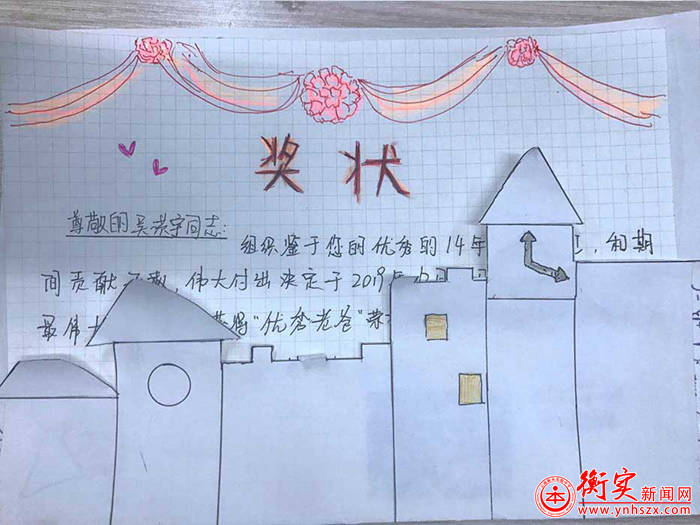 奖状
尊敬的吴学宇同志:
组织鉴于您的优秀的14年 ,和期
间贡献 ,伟大付出决定于2019
最伟 获得“优秀老爸”荣
衡实新闻网
www.ynhszx.com